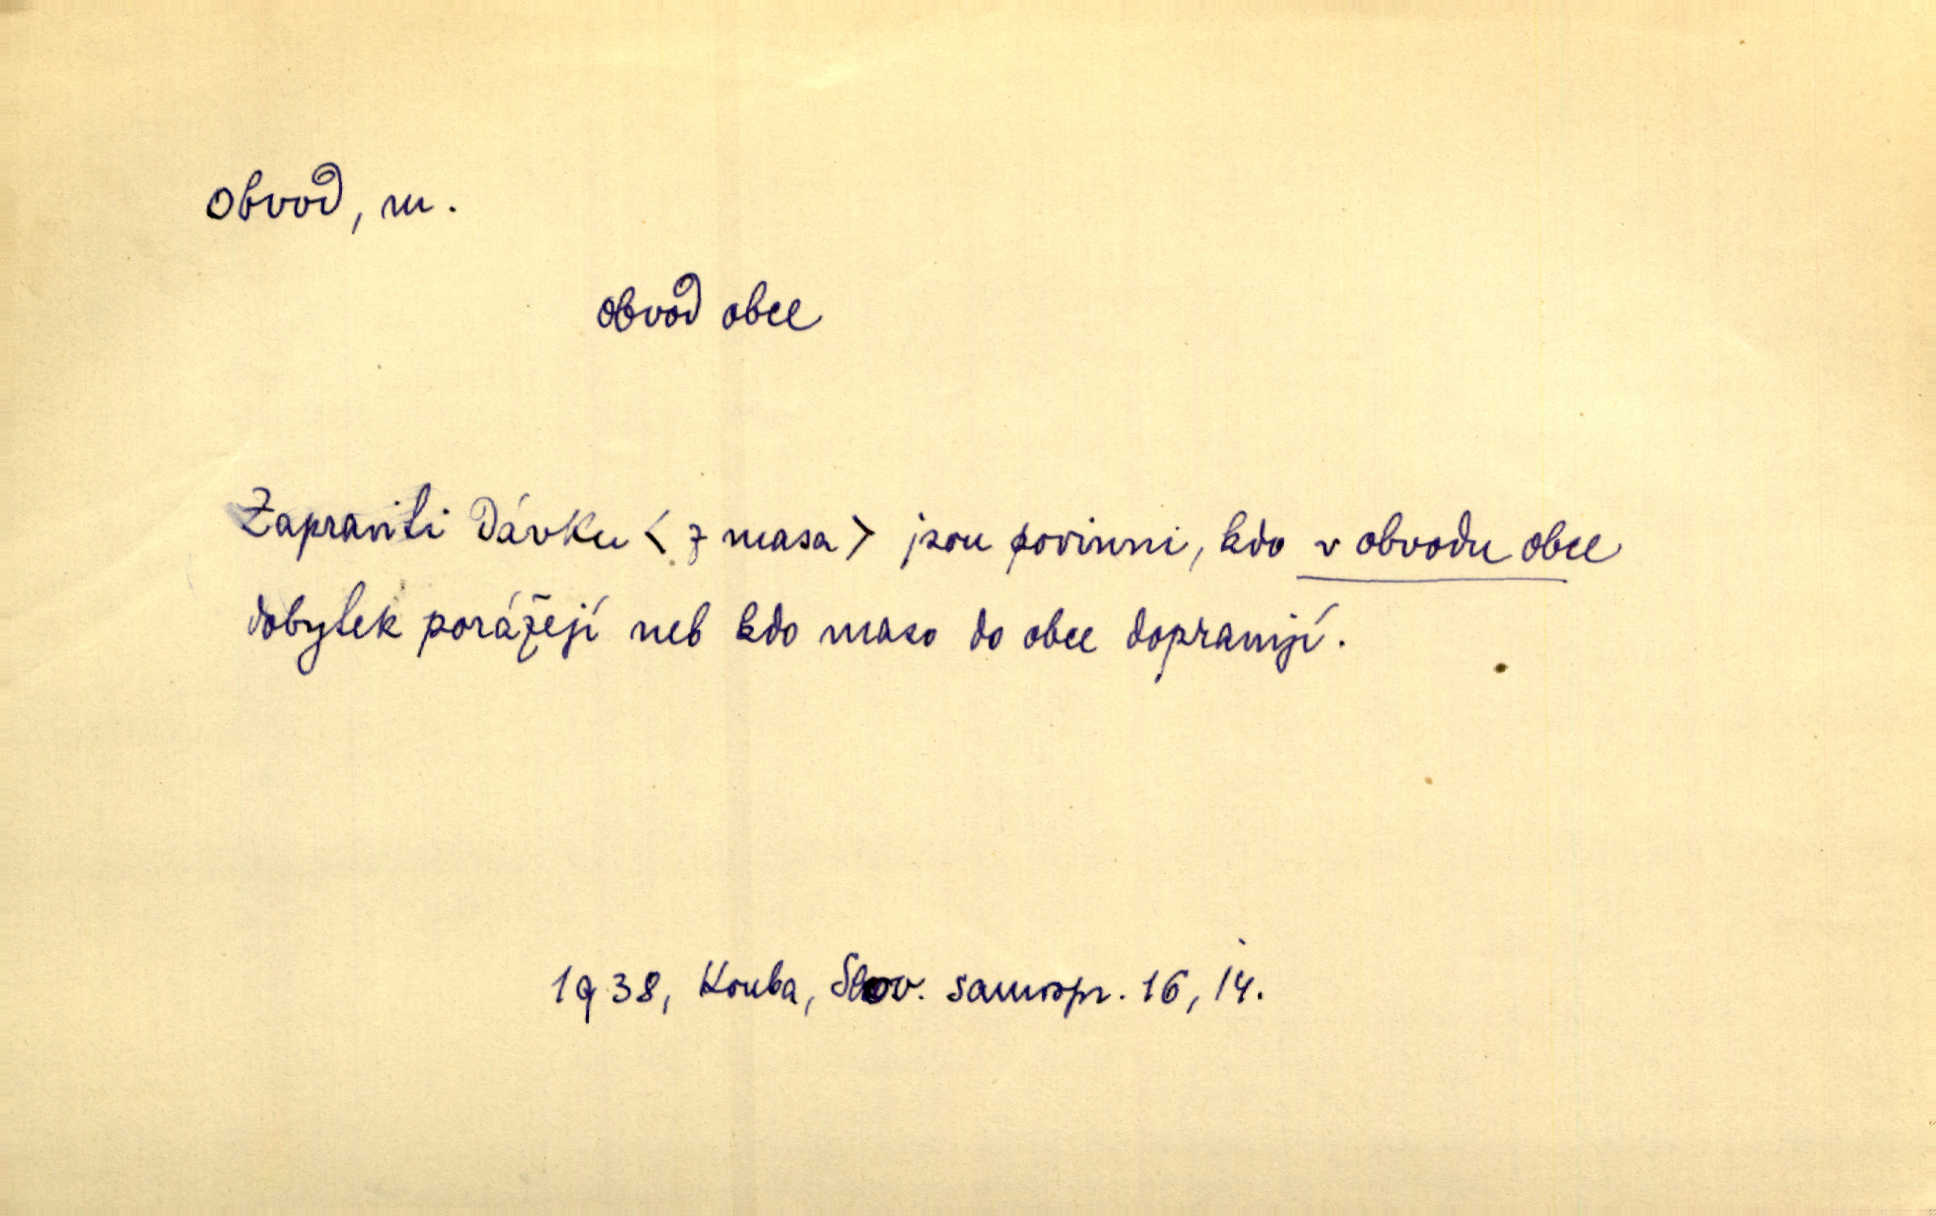 obvod, m.
obvod obce
Zapraviti dávku < z masa > jsou povinni, kdo v obvodu obce
dobytek porážejí neb kdo maso do obce dopravují.
1938, Kouba, Slov. samospr. 16, 14.